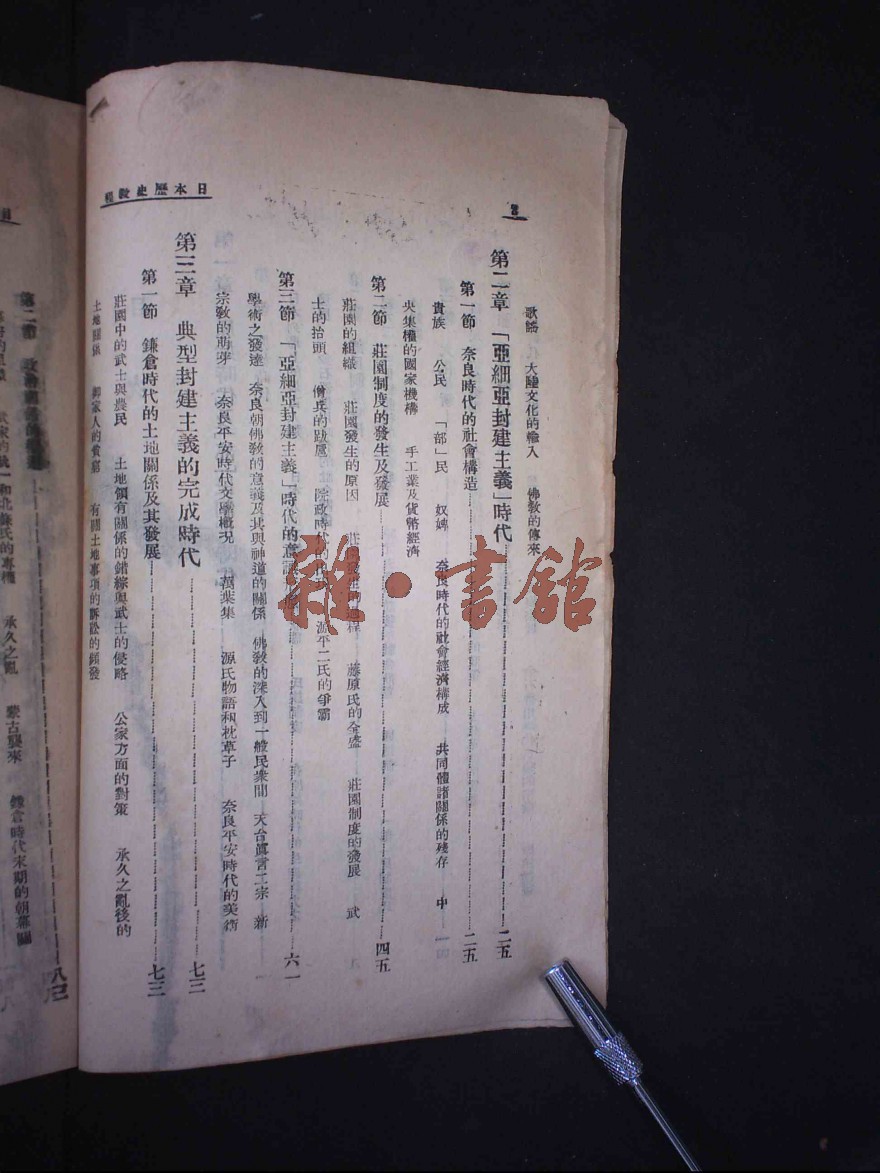 日本歷史教程
二
歌謠　大陸文化的輸入　佛教的傳來
第二章　「亞細亞封建主義」時代……二五
第一節　奈良時代的社會構造……二五
貴族　公民　「部」民　奴婢　奈良時代的社會經濟構成　共同體諸關係的殘存　中
央集權的國家機構　手工業及貨幣經濟
第二節　莊園制度的發生及發展……四五
莊園的組織　莊園發生的原因　莊園發生的過程　藤原氏的全盛　莊園制度的發展　武
士的抬頭　僧兵的跋扈　院政時代的　源平二氏的爭霸
第三節　「亞細亞封建主義」時代的意識形態……六一
學術之發達　奈良朝佛敎的意義及其與神道的關係　佛敎的深入到一般民衆間　天台眞言二宗　新
宗敎的萌芽　奈良平安時代文學槪況　萬葉集　源氏物語和枕草子　奈良平安時代的美術
第三章　典型封建主義的完成時代……七三
第一節　鎌倉時代的土地關係及其發展……七三
莊園中的武士與農民　土地領有關係的錯綜與武士的侵略　公家方面的對策　承久之亂後的
土地關係　御家人的貧窮　有關土地事項的訴訟的頻發
第二節
承久之亂　蒙古襲來　鎌倉時代末期的朝幕關
雜·書館